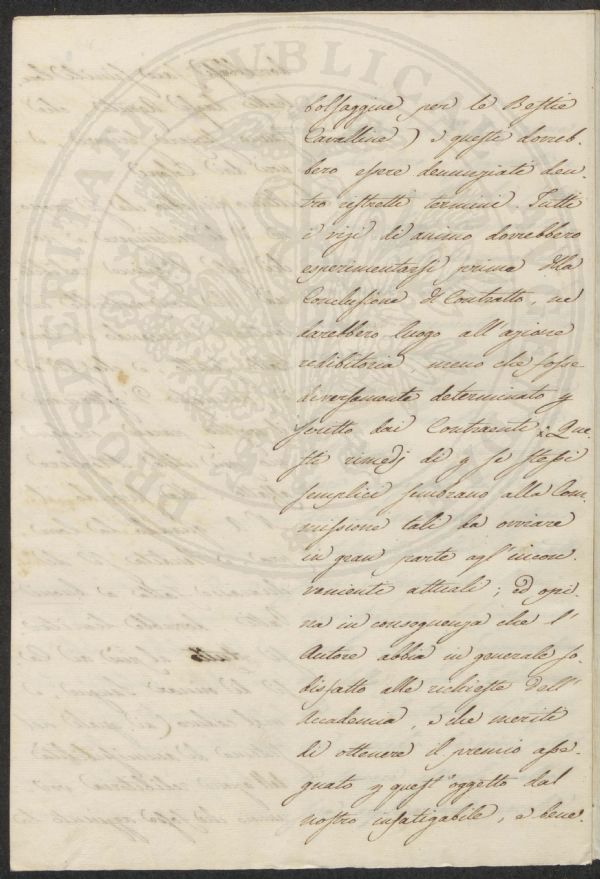 PROSPERITATI PUBLICAE AUGENDAE
bolsaggine per le Bestie
Cavalline) e questi dovreb-
bero essere denunziate den-
tro ristretti termini. Tutti
i vizi di animo dovrebbero
esperimentarsi prima della
Conclusione del Contratto, ne
darebbero luogo all'azione
redibitoria, meno che fosse
diversamente determinato p
scritto dai Contraenti: Que-
sti rimedj di p se stessi
semplici sembrano alla Com-
missione tali da ovviare
in gran parte agl'incon-
veniente attuali; ed opi-
na in conseguenza che l'
Autore abbia in generale so-
disfatto alle richieste dell'
Accademia, e che meriti
di ottenere il premio asse-
gnato p quest'oggetto dal
nostro infatigabile, e bene-